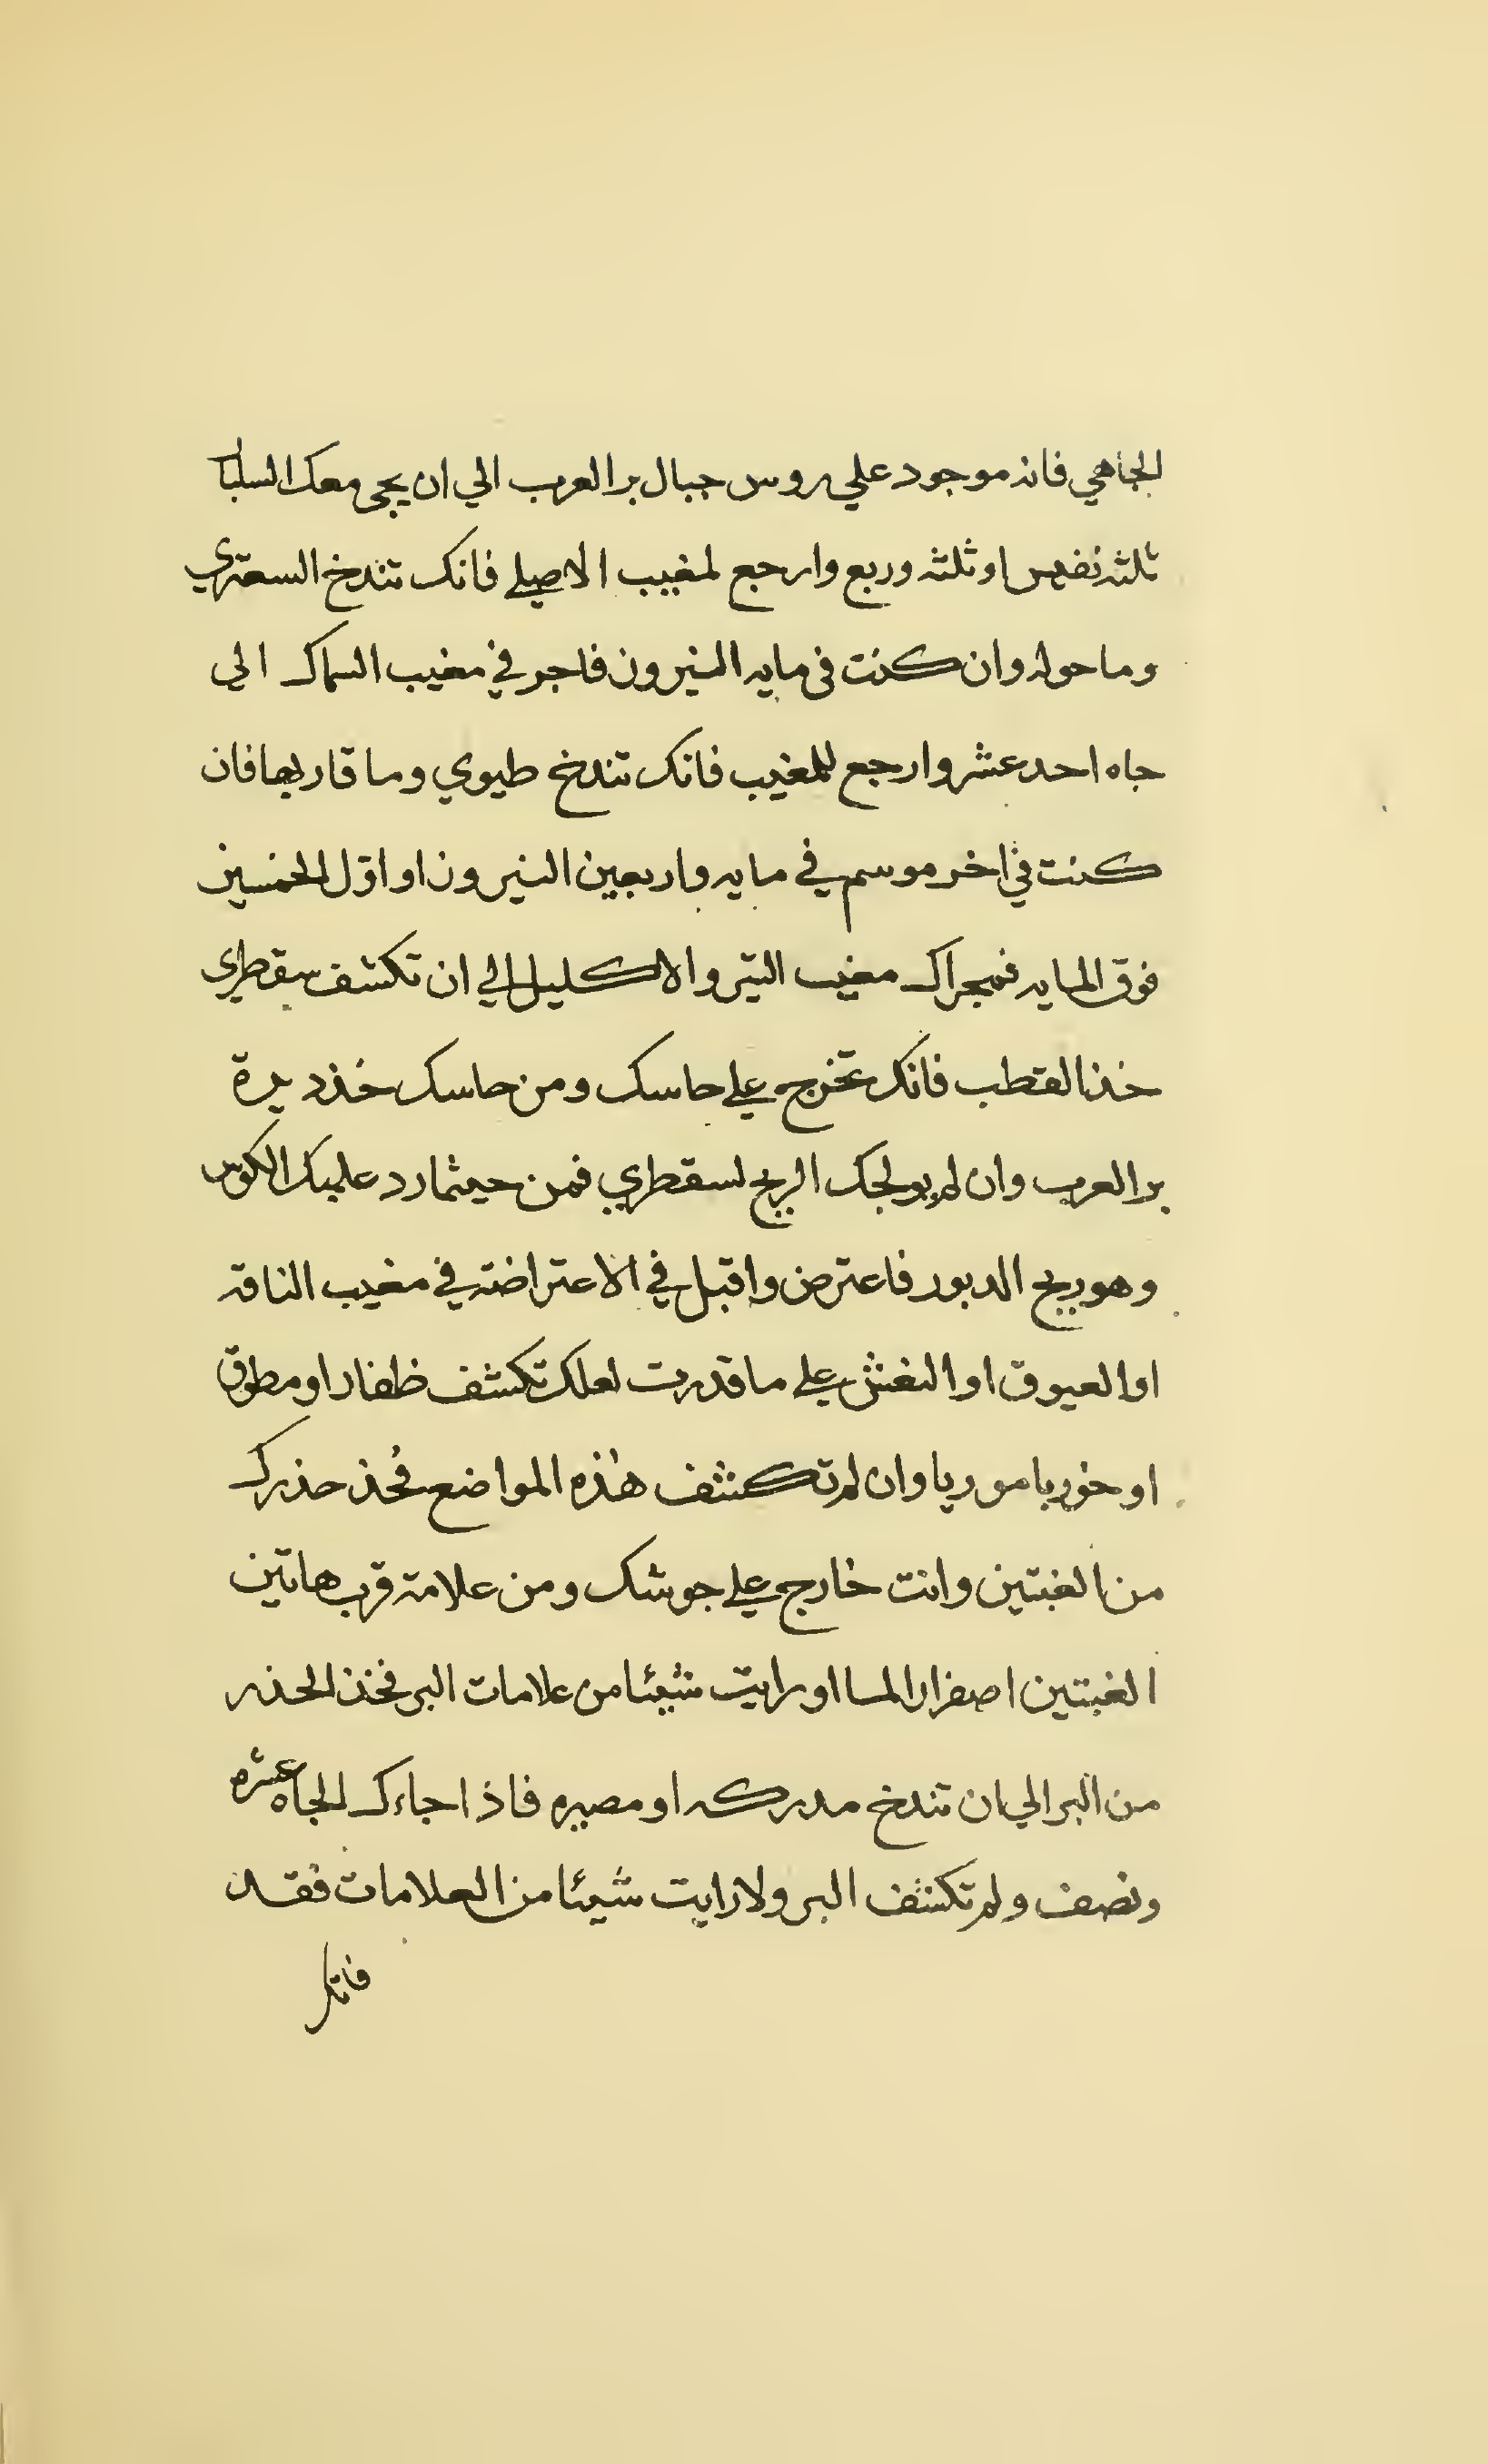 الجاهي فانه موجود علي روس جبال بر العرب الي ان يجى معك السلبار
ثلثه نفيس او ثلثه وربع وارجع لمغيب الاصيلي فانك تندخ السعتري
وما حوله وان كنت في مايه النيرون فاجر في مغيب السماك الي
جاه احد عشر وارجع للمغيب فانك تندخ طيوي وما قاربها فان
كنت في اخر موسم في مايه واربعين النيرون او اوّل الخمسين
فوق المايه فمجراك مغيب التير والاكليل الي ان تكشف سقطري
خذ القطب فانك تخرج علي حاسك ومن حاسك خذ ديرة
بر العرب وان لم يولجك الريح لسقطري فمن حيثما رد عليك الكوس
وهو ريح الدبور فاعترض واقبل في الاعتراضة في مغيب الناقه
او العيوق او النعش علي ما قدرت لعلك تكشف ظفار او مطوق
او خوريا موريا وان لم تكشف هذه المواضع فخذ حذرك
من الغبتين وانت خارج علي جوشك ومن علامة قرب هاتين
الغبتين اصفرار الما او رايت شيئا من علامات البر فخذ الحذر
من البر الي ان تندخ مدركه او مصيره فاذا جاءك الجاه عشره
ونصف ولم تكشف البر ولا رايت شيئا من العلامات فقد
فاتك